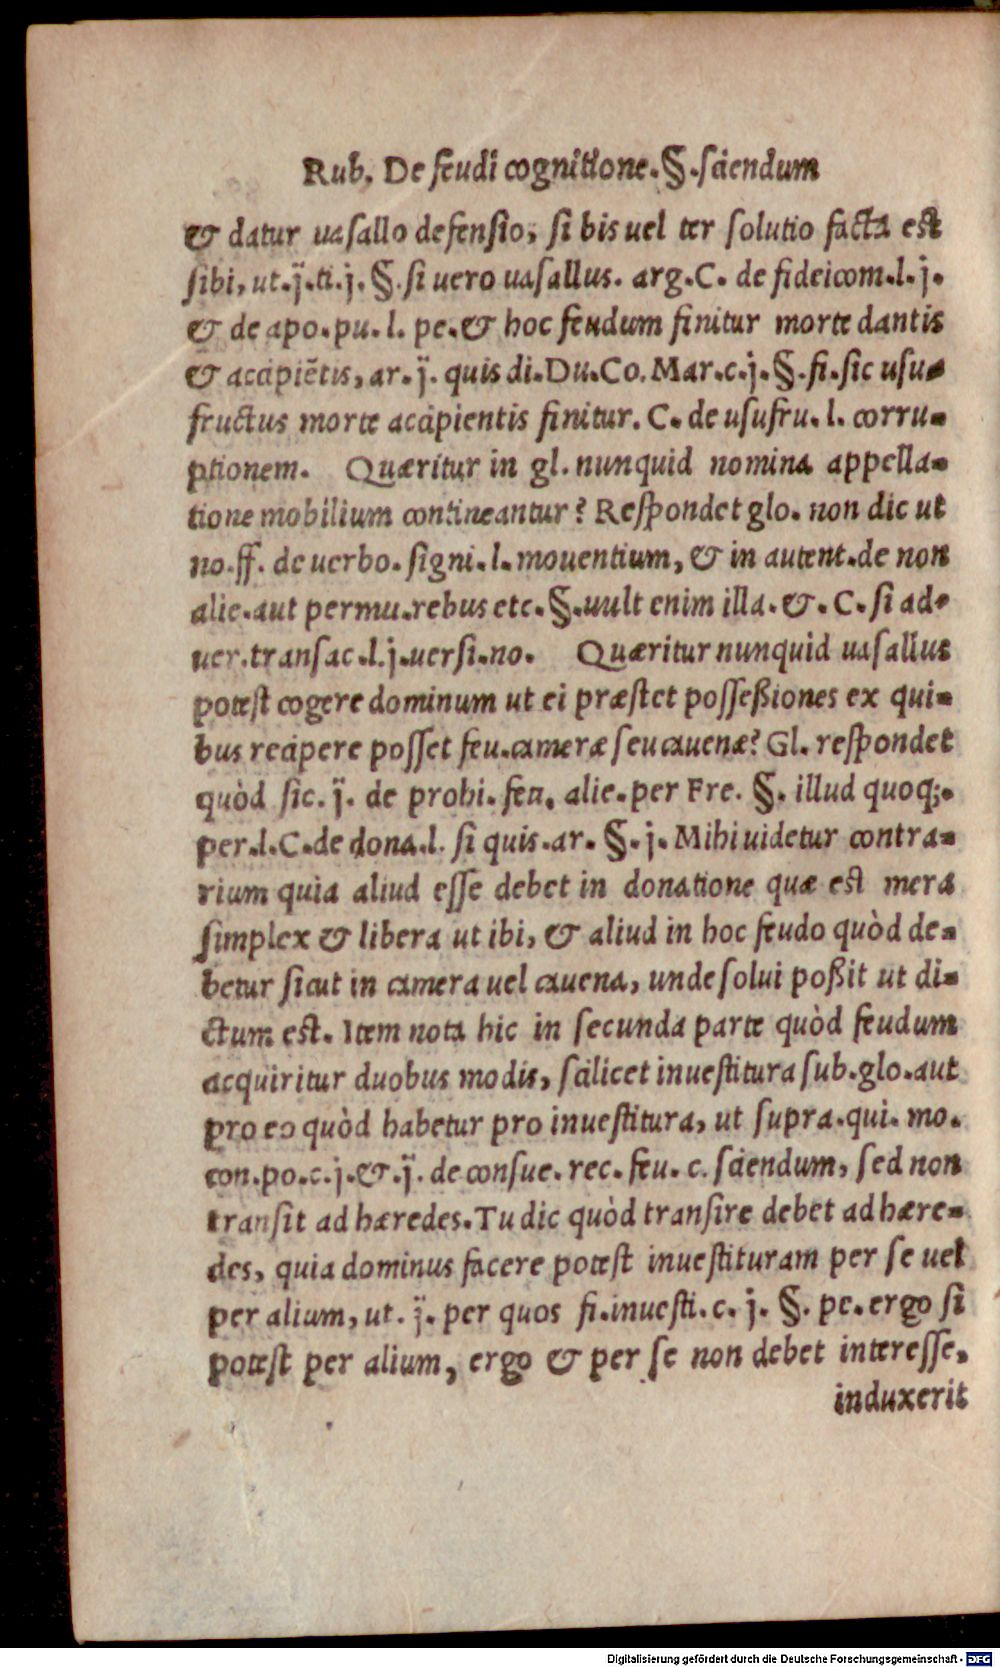 Rub. De feudi cognitione.§.sciendum
& datur uasallo defensio, si bis uel ter solutio facta est
sibi, ut.ij.ti.j. §.si uero uasallus. arg.C. de fideicom.l.j.
& de apo.pu.l. pe.& hoc feudum finitur morte dantis
& accipiẽtis, ar.ij. quis di.Du.Co.Mar.c.j.§.fi.sic usu-
fructus morte accipientis finitur. C. de usufru.l. corru-
ptionem. Quæritur in gl. nunquid nomina appella-
tione mobilium contineantur? Respondet glo. non dic ut
no.ff. de uerbo. signi.l. mouentium, & in autent.de non
alie.aut permu.rebus etc.§.uult enim illa.&.C.si ad-
uer.transac.l.j.uersi.no. Quæritur nunquid uasallus
potest cogere dominum ut ei præstet posseßiones ex qui-
bus recipere posset feu.cameræ seu cauenæ? Gl. respondet
quòd sic. ij. de prohi. feu. alie.per Fre. §. illud quoq;.
per.l.C.de dona.l. si quis.ar. §.j. Mihi uidetur contra-
rium quia aliud esse debet in donatione quæ est mera
simplex & libera ut ibi, & aliud in hoc feudo quòd de-
betur sicut in camera uel cauena, unde solui poßit ut di-
ctum est. Item nota hic in secunda parte quòd feudum
acquiritur duobus modis, scilicet inuestitura sub.glo.aut
pro eo quòd habetur pro inuestitura, ut supra.qui. mo.
con.po.c.j.&.ij. de consue. rec. feu. c. sciendum, sed non
transit ad hæredes. Tu dic quòd transire debet ad hære-
des, quia dominus facere potest inuestituram per se uel
per alium, ut. ij. per quos fi.inuesti.c. j. §. pe.ergo si
potest per alium, ergo & per se non debet interesse,
induxerit
Digitalisierung gefördert durch die Deutsche Forschungsgemeinschaft - DFG